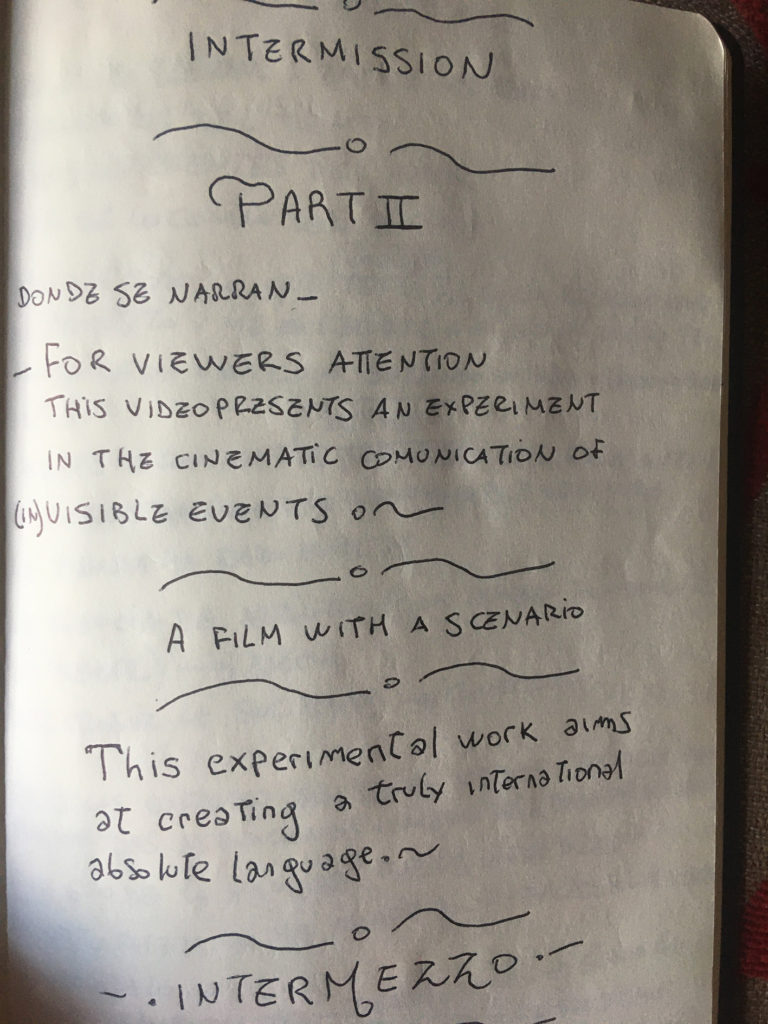 INTERMISSION
PART II
DONDE SE NARRAN_
- FOR VIEWERS ATTENTION
THIS VIDEO PRESENTS AN EXPERIMENT
IN THE CINEMATIC COMUNICATION OF
(IN)VISIBLE EVENTS
A FILM WITH A SCENARIO
This experimental work aims
at creating a truly international
absolute language.~
- . INTERMEZZO . -